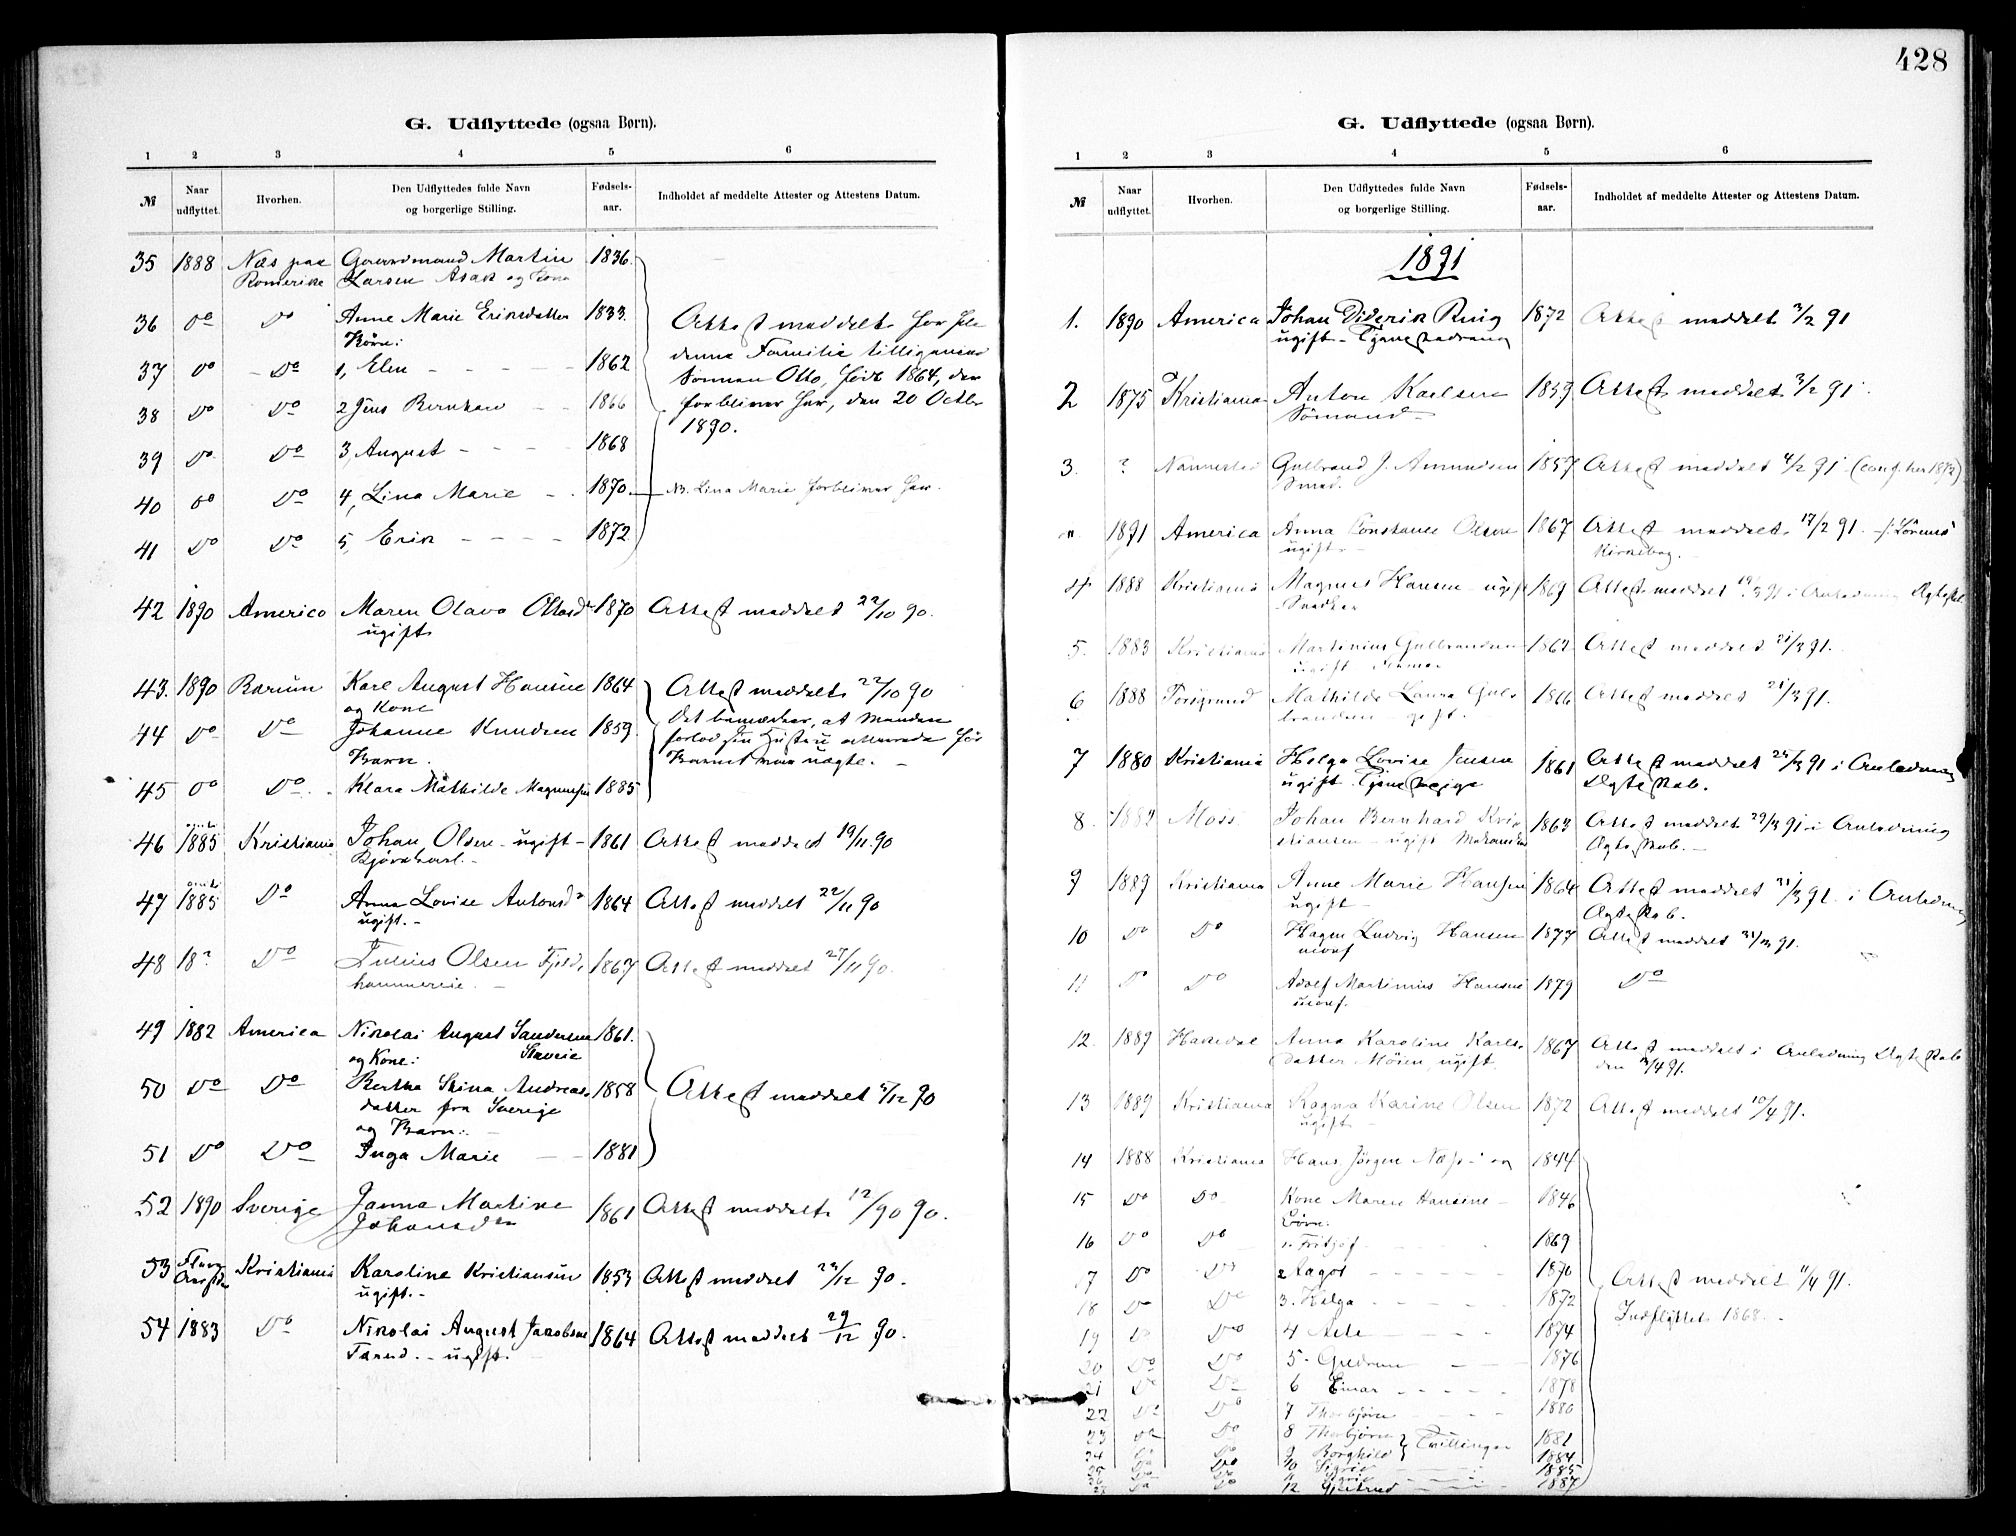 428
G. Udflyttede (ogsaa Børn).
1 2 3 4 5 6
№ Naar udflyttet. Hvorhen. Den Udflyttedes fulde Navn og borgerlige Stilling. Fødsels-aar. Indholdet af meddelte Attester og Attestens Datum.
35 1888 Næs paa Gaardmand Martin 1836.
Romerike Larsen Asak og Kona
36 Do Do Anne Marie Eriksdatter 1833. Attest meddelt for hele
Børn: denne Familie tilligemed
37 Do Do 1, Elen 1862 Sønnen Otto, født 1864, der
38 Do Do 2 Jens Bernhard 1866 forbliver her, den 20 Octbr
1890.
39 Do Do 3, August 1868
40 Do Do 4, Lina Marie 1870. NB. Lina Marie forbliver her.
41 Do Do 5, Erik 1872
42 1890 America Maren Olava Olsd 1870 Attest meddelt 22/10 90.
ugift
43. 1890 Bærum Karl August Hansen 1864 Attest meddelt 22/10 90
og Kone Det bemærkes, at Manden
44 Do Do Johanne Knudsen 1859. for
Barn. Barnet var uægte.
45 Do Do Klara Mathilde Magnussen 1885
46 1885 Kristiania Johan Olsen - ugift - 1861 Attest meddelt 19/11 90
47 1885 Do Anna Lovise Antonsd 1864 Attest meddelt 22/11 90
ugift.-
48 18? Do Julius Olsen Fjeld- 1867 Attest meddelt 27/11 90.
hammereie.
49 1882 America Nikolai August Sandersen 1861.
og Kone:
50 Do Do Bertha Stina Andreas- 1858 Attest meddelt 5/12 90
datter fra Sverige
og Barn:
51 Do Do Inga Marie 1881
52 1890 Sverige Janna Martine 1861 Attest meddelt 12/90 90.
Johansdtr
53 Kristiania Karoline Kristiansen 1853 Attest meddelt 23/12 90.
ugift.-
54 1883 Do Nikolai August Jacobsen 1864 Attest meddelt 29/12 90.
- ugift.
G. Udflyttede (ogsaa Børn).
1 2 3 4 5 6
№ Naar udflyttet. Hvorhen. Den Udflyttedes fulde Navn og borgerlige Stilling. Fødsels-aar. Indholdet af meddelte Attester og Attestens Datum.
1891
1. 1890 America Johan Diderik Ruig 1872 Attest meddelt 3/2 91
ugift -
2 1875 Kristiania Anton Karlsen 1859 Attest meddelt 3/2 91.
Sømand
3. ? Nannestad Gulbrand J. Amundsen 1857 Attest meddelt 4/2 91 (conf. her 1892)
Smed.
" 1891 America Anna Constance Olsen 1867 Attest meddelt 17/2 91.
ugift.- Kirkebog.
4 1888 Kristiania Magnus Hansen ugift 1869 Attest meddelt 19/3 91 i Anledning Ægtesk.
Snedker
5. 1883 Kristiania Martinius Gulbrandsen 1862 Attest meddelt 21/3 91.
ugift
6 1888 Porsgrund Mathilde Laura Gul- 1866 Attest meddelt 21/3 91.
brandsen gift.
7 1880 Kristiania Helga Lovise Jensen 1861 Attest meddelt 25/3 91 i Anledning
ugift Tjenestepige Ægteskab.
8. 1883 Moss Johan Bernhard Kri- 1863 Attest meddelt 29/3 91 i Anledning
stiansen - ugift Ægteskab.
9 1889 Kristiania Anne Marie Hansen 1864 Attest meddelt 31/3 91. i Anledning
ugift Ægteskab.
10 Do Do Hagen Ludvig Hansen 1877 Attest meddelt 31/3 91.
ukonf
11 Do Do Adolf Martinius Hansen 1879 Do
ukonf.
12. 1889 Hakedal Anna Karoline Karls- 1867 Attest meddelt i Anledning Ægteskab
datter Møien, ugift. den 3/4 91.
13 1889 Kristiania Ragna Karine Olsen 1872 Attest meddelt 10/4 91.
ugift
14 1888 Kristiania Hans Jørgen Næss og 1844
15 Do Do Kone Maren Hansine 1846
Børn:
16 Do Do 1. Fritjof 1869
17 Do Do 2 Aagot 1870 Attest meddelt 11/4 91.
18 Do Do 3. Helga 1872 Indflyttet 1868.
19 Do Do 4 1874
20 Do Do 5. Gudrun 1876
21 Do Do 6 Einar 1878
22 Do Do 7 Thorbjørn 1880
23 Do Do 8 1881
24 Do Do 9 Borghild Tvillinger 1884
25 Do Do 10 Sigrid 1885
12 Gjertrud 1887